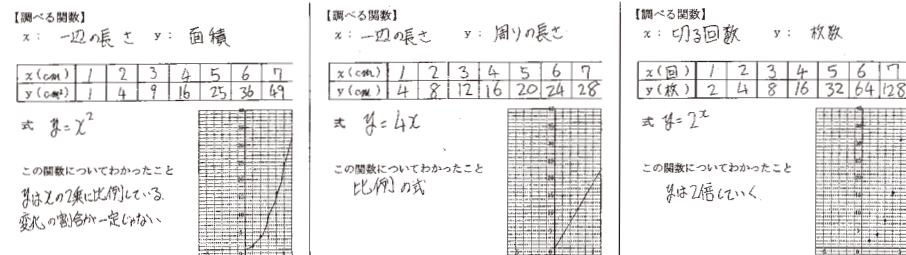 【調べる関数】
x： 一辺の長さ y： 面積
x(cm) 1 2 3 4 5 6 7
y(cm²) 1 4 9 16 25 36 49
式 y=x²
この関数についてわかったこと
yはxの2乗に比例している
変化の割合が一定じゃない
【調べる関数】
x： 一辺の長さ y： 周りの長さ
x(cm) 1 2 3 4 5 6 7
y(cm) 4 8 12 16 20 24 28
式 y=4x
この関数についてわかったこと
比例の式
【調べる関数】
x： 切る回数 y： 枚数
x(回) 1 2 3 4 5 6 7
y(枚) 2 4 8 16 32 64 128
式 y=2ˣ
この関数についてわかったこと
yは2倍していく